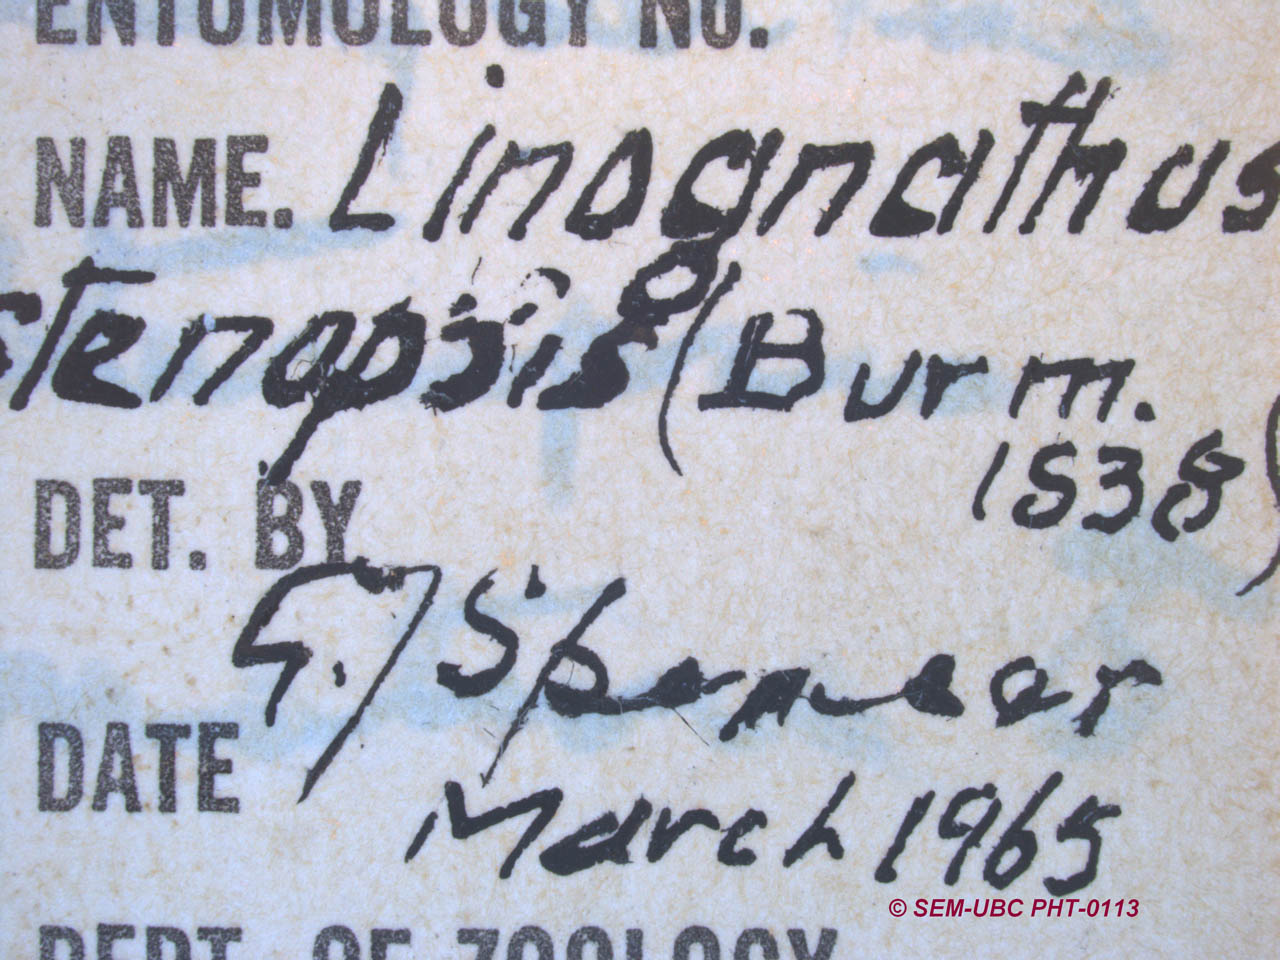 ENTOMOLOGY NO.
NAME. Linognathus
stenopsis (Burm.
1838)
DET. BY
G. J. Spencer
DATE
March 1965
© SEM-UBC PHT-0113
DEPT. OF ZOOLOGY